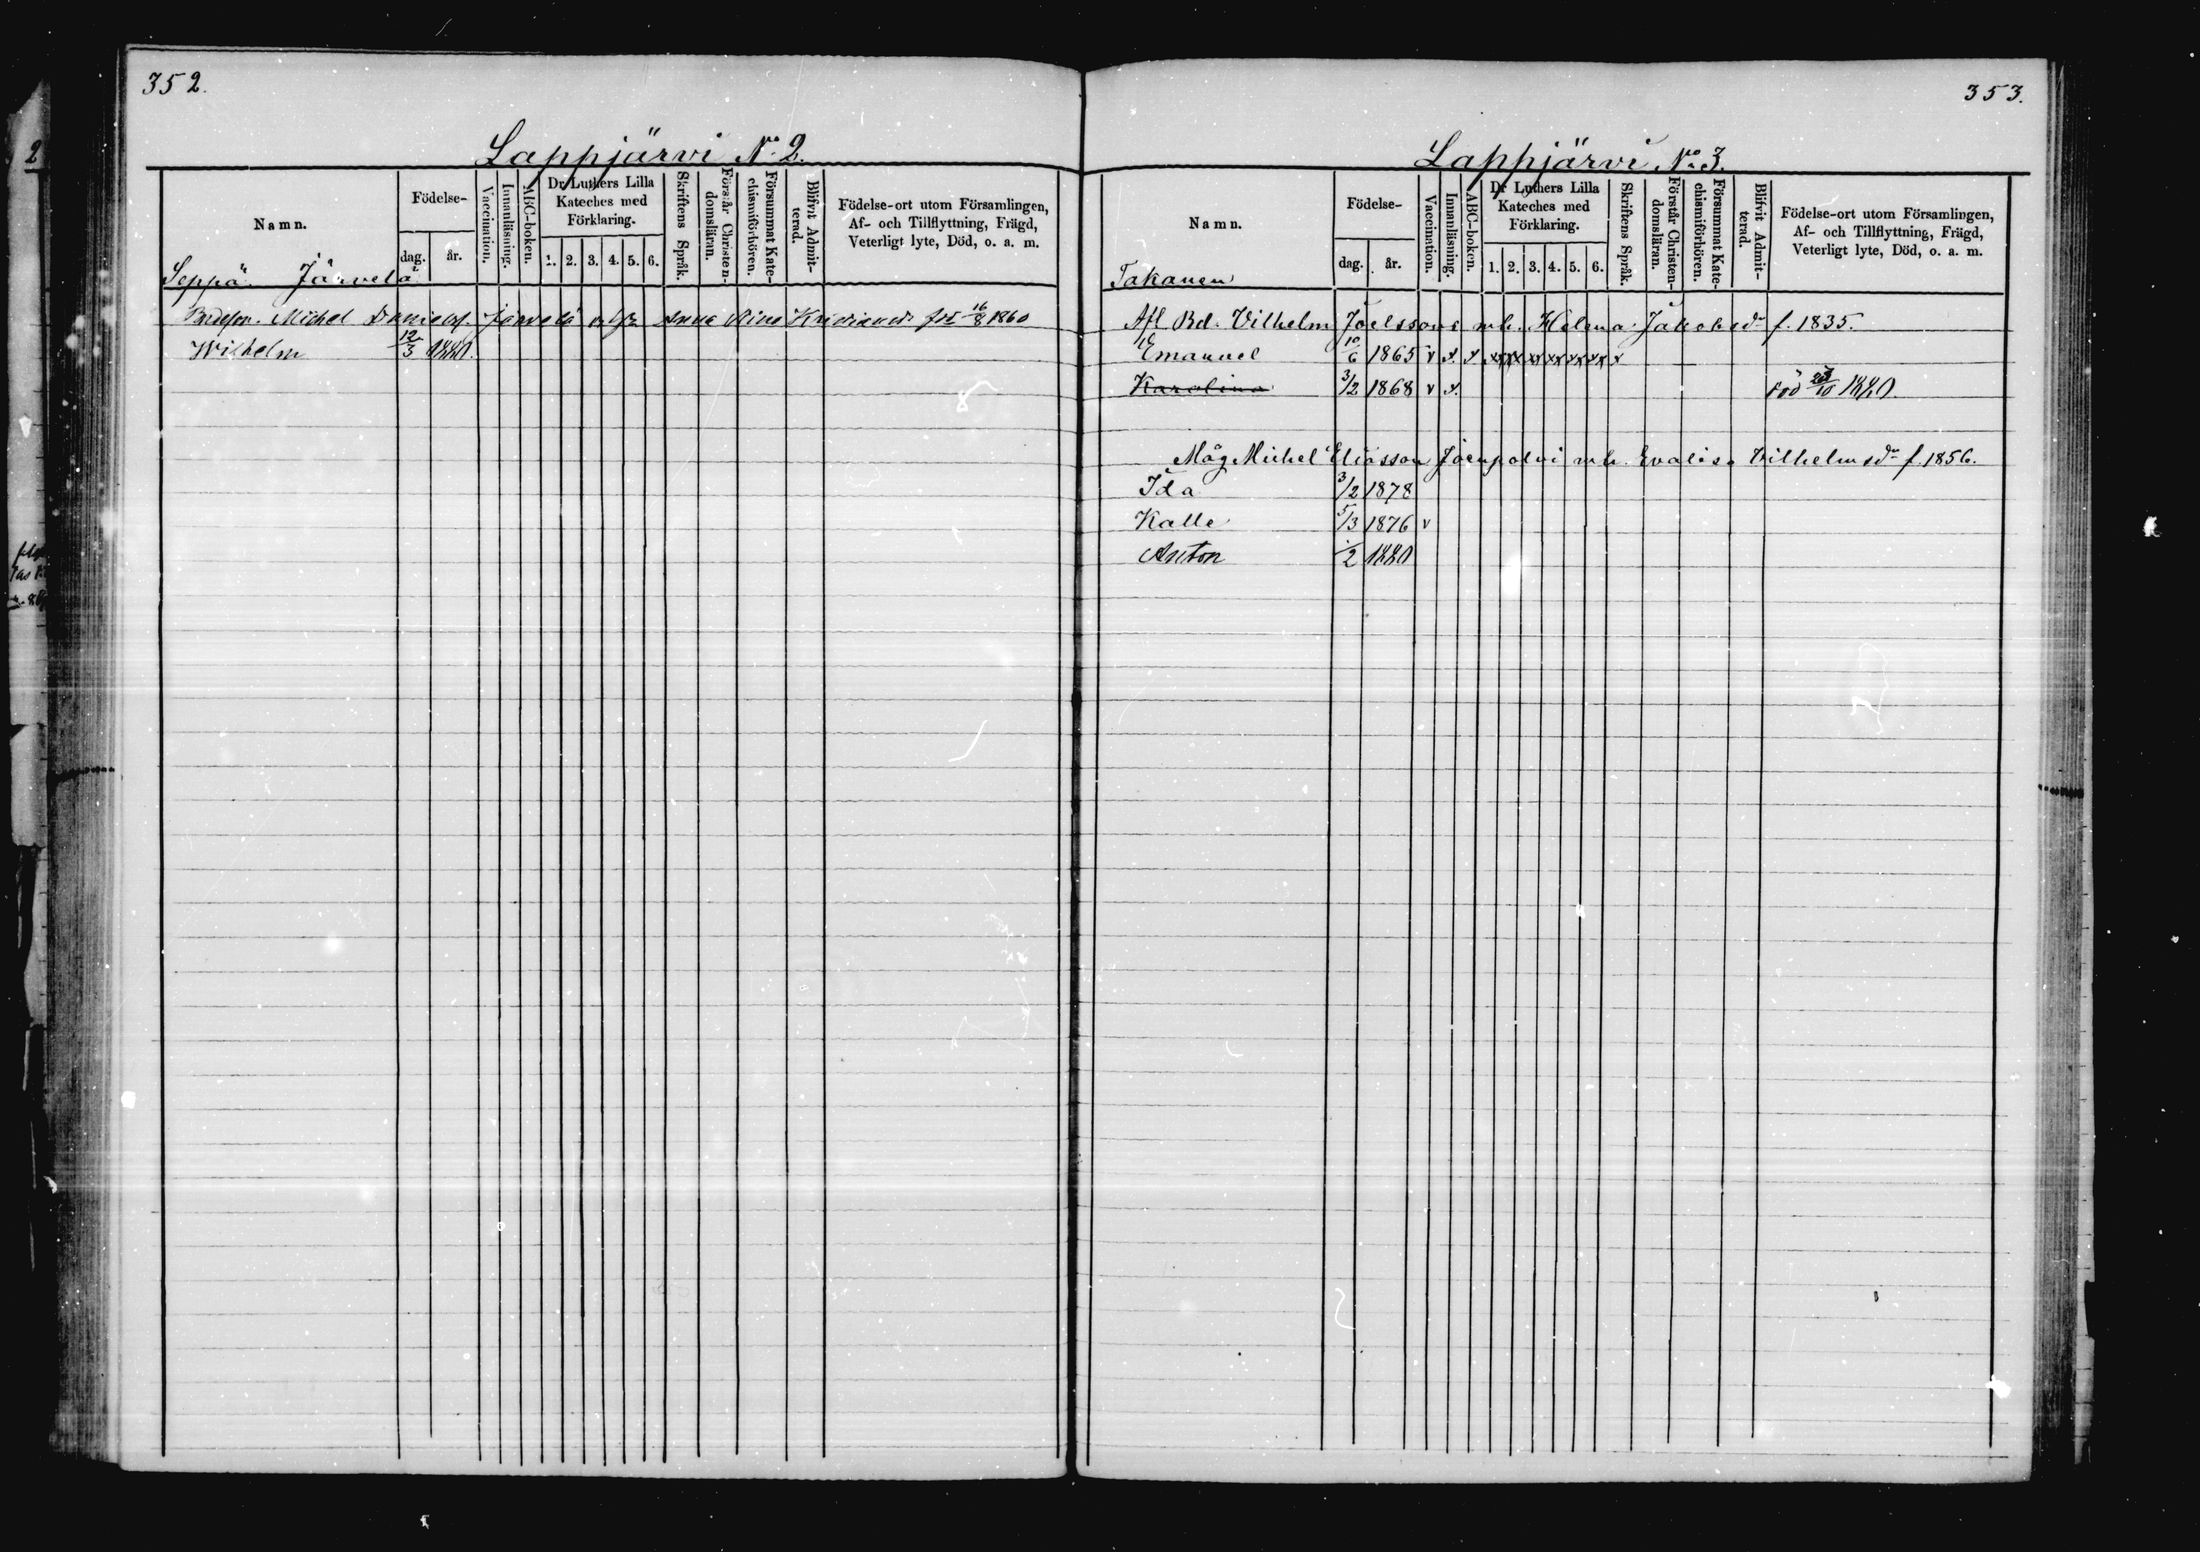 352.
Lappjärvi No 2.
Namn.
Födelse-
dag.
år.
Vaccination.
Innanläsning.
ABC-boken.
Dr Luthers Lilla
Kateches med
Förklaring.
1. 2. 3. 4. 5. 6.
Skriftens Språk.
Förstår Christen-
domsläran.
Försummat Kate-
chismiförhören.
Blifvit Admit-
terad.
Födelse-ort utom Församlingen,
Af- och Tillflyttning, Frägd,
Veterligt lyte, Död, o. a. m.
Seppä. Järvelä
Michel Daniels. Järvelä Anna Stina 16/8 1860
Wilhelm 12/3 1880.
353.
Lappjärvi No 3.
Namn.
Födelse-
dag. år.
Vaccination.
Innanläsning.
ABC-boken.
Dr Luthers Lilla
Kateches med
Förklaring.
1. 2. 3. 4. 5. 6.
Skriftens Språk.
Förstår Christen-
domsläran.
Försummat Kate-
chismiförhören.
Blifvit Admit-
terad.
Födelse-ort utom Församlingen,
Af- och Tillflyttning, Frägd,
Veterligt lyte, Död, o. a. m.
Takanen
Afl Bd. Vilhelm Joelssons mh. Helena Jakobsdr f. 1835.
Emanuel 10/6 1865 v x x xx xx xx xx xx xx x
Karolina 3/2 1868 v x. död 23/10 1880.
Måg Michel Eliasson Joenpolvi mh. Evalisa Vilhelmsdr f. 1856.
Ida 3/2 1878
Kalle 5/3 1876 v
Anton 1/2 1880